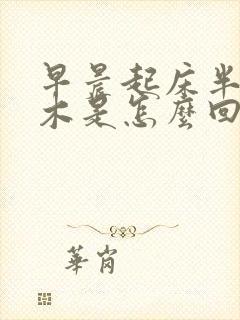 早晨起床半
木是怎麼回
華崗